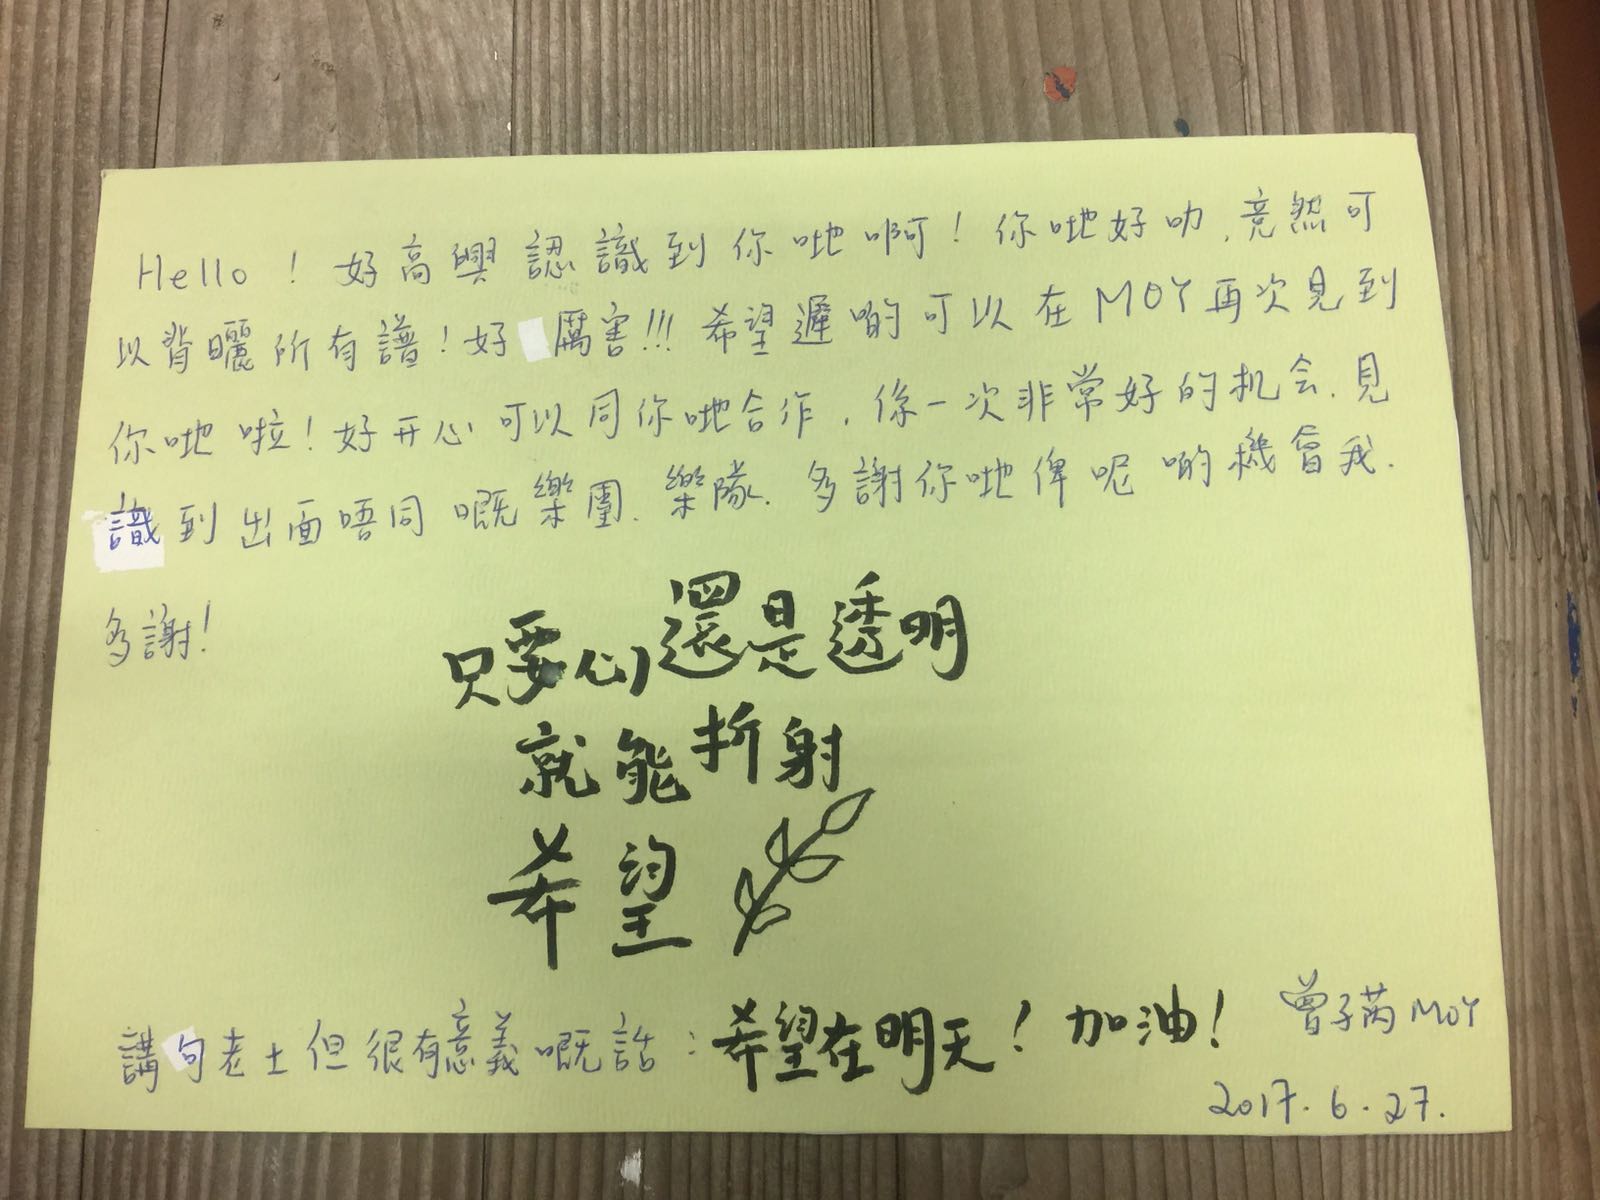 Hello！好高興認識到你哋啊！你哋好叻，竟然可
以背曬所有譜！好厲害!!!希望遲啲可以在MOY再次見到
你哋啦！好开心可以同你哋合作，係一次非常好的机会，見
識到出面唔同嘅樂團、樂隊．多謝你哋俾呢啲機會我．
多謝！
只要心還是透明
就能折射
希望
講句老土但很有意義嘅話：希望在明天！加油！
曾子芮 MOY
2017．6．27．